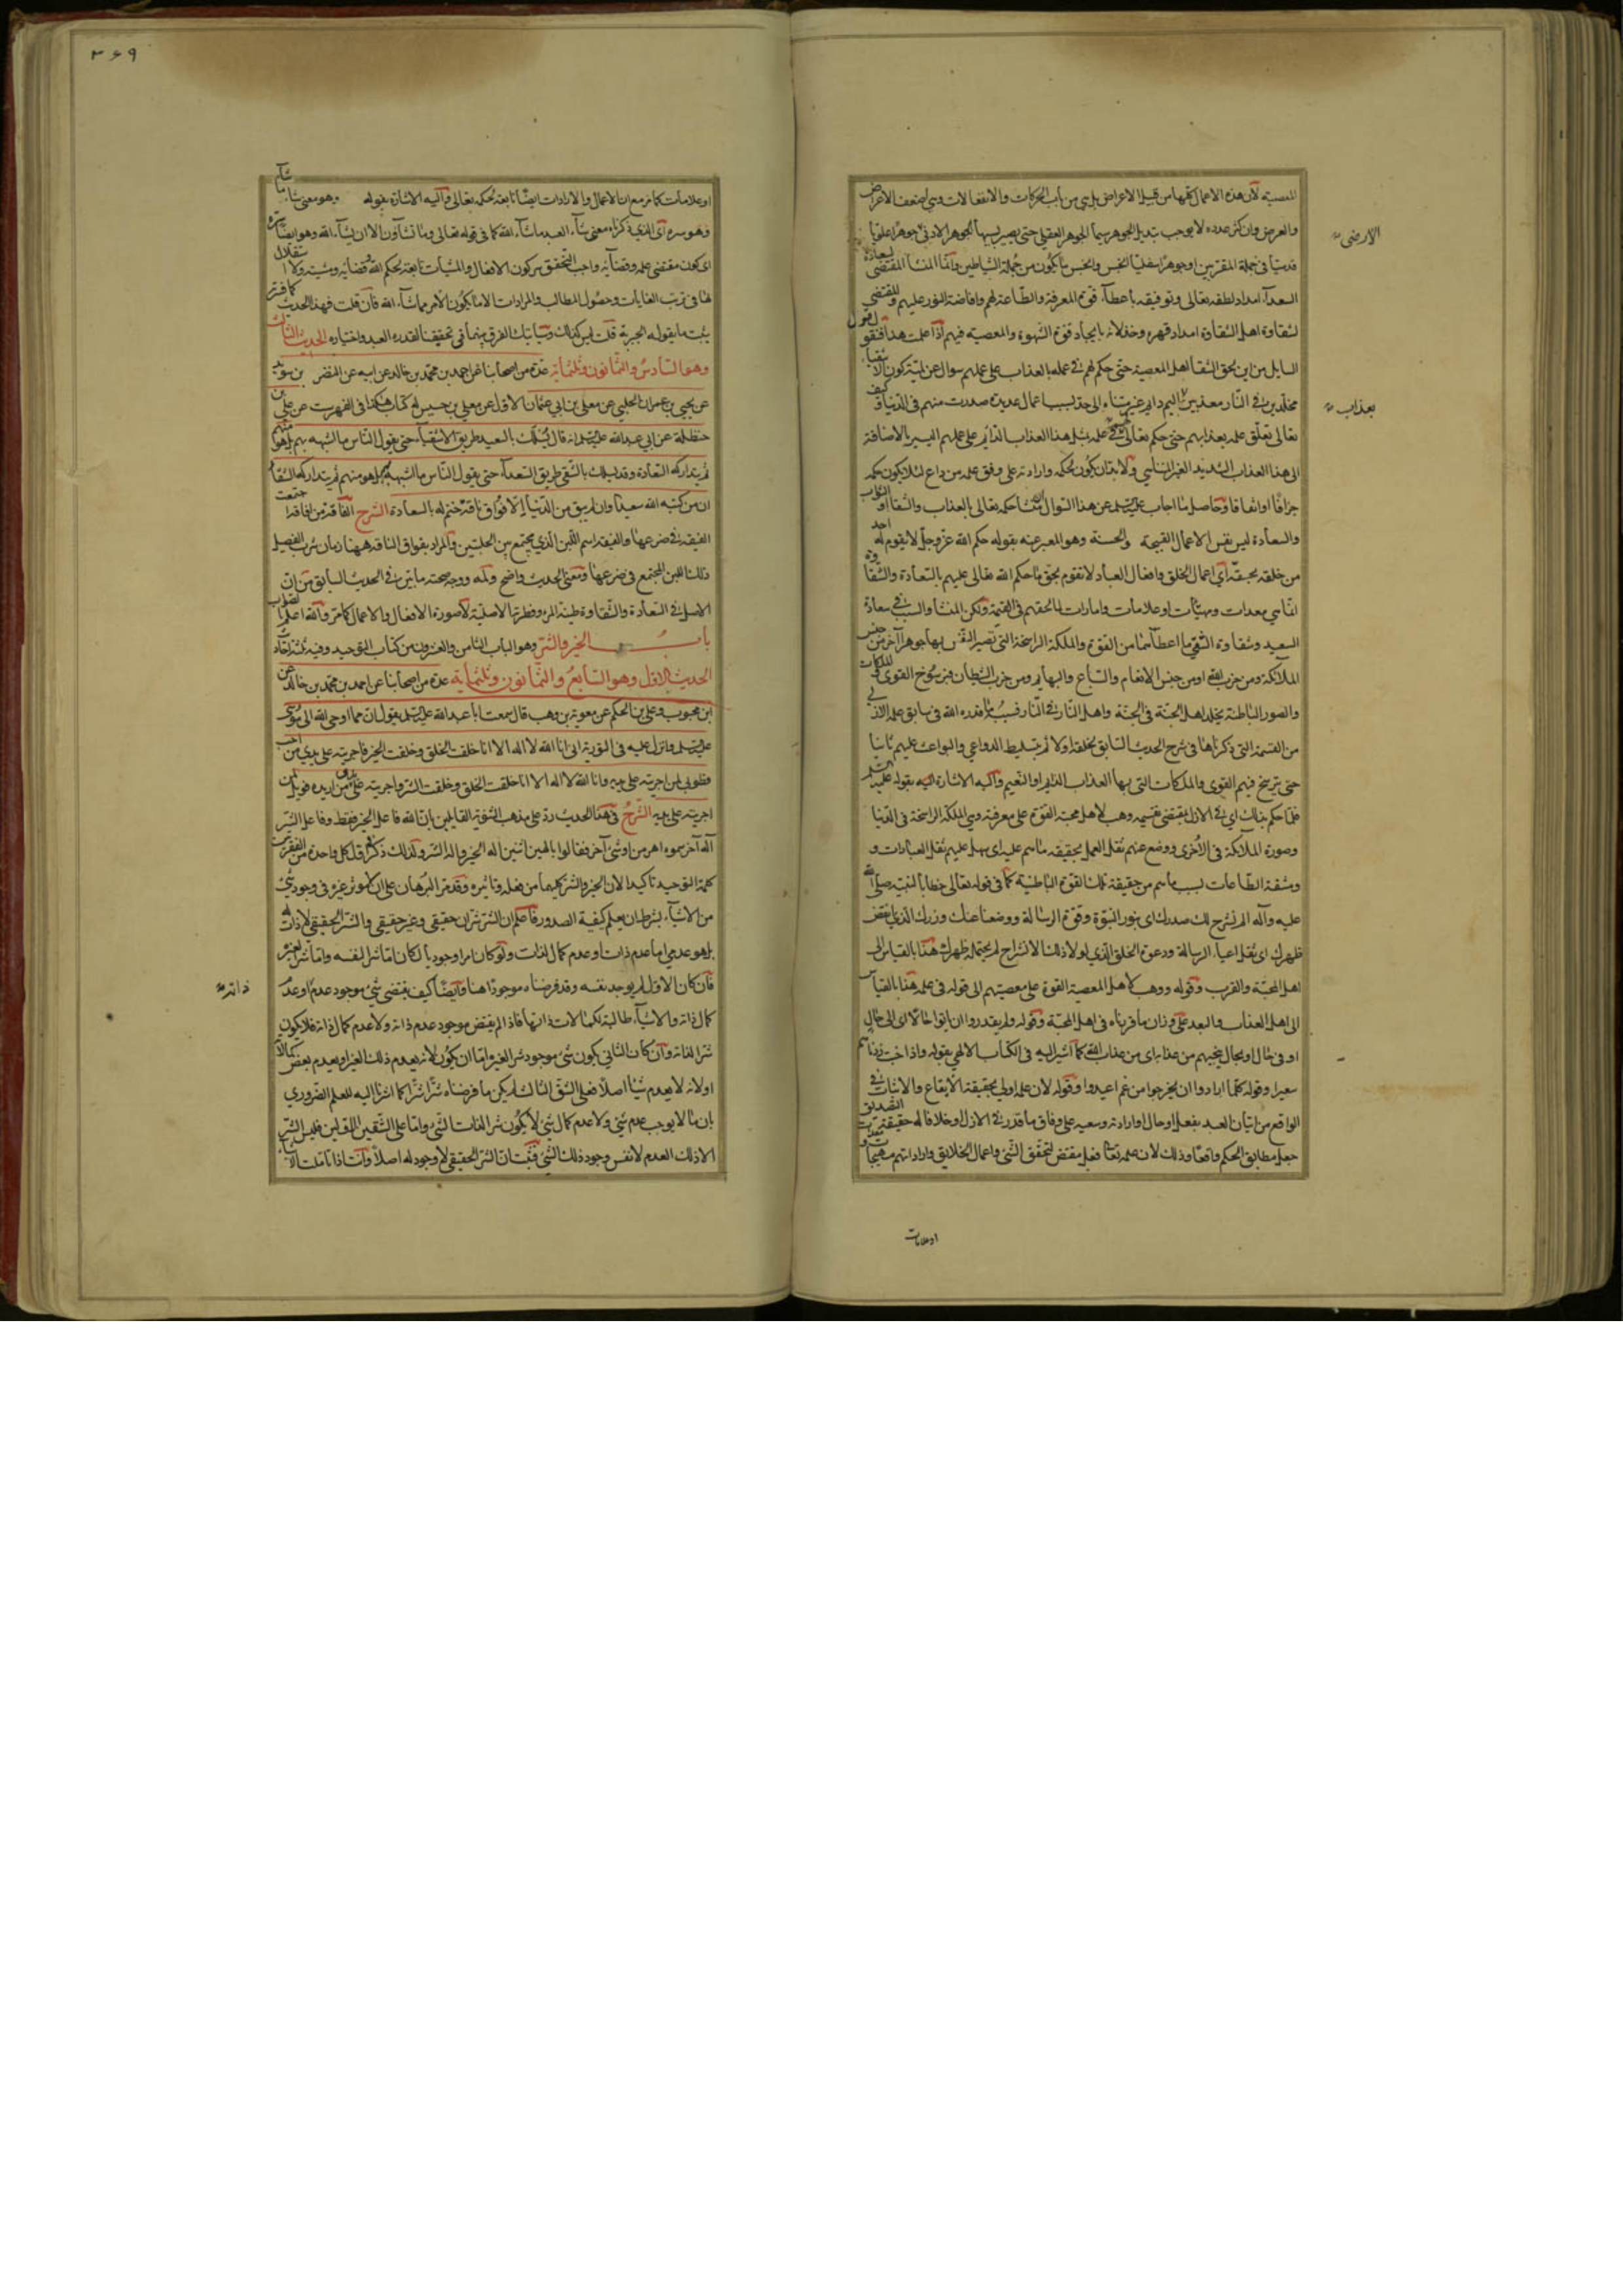 المعصية لان هذه الاعمال كلها من قبيل الاعراض بل هي من باب الحركات والانفعالات وهي اضعف الاعراض
والعرض وان كثر عدده لا يوجب تبديل الجوهر سيما الجوهر العقلي حتى يصير بسببها الجوهر الادنى جوهرا علويا
قدسيا في جملة المقربين او جوهرا سفليا الخس والخس ما يكون من جملة الشياطين وانما المنشأ المقتضي لسعادة
السعدآء امداد لطفه تعالى وتوفيقه باعطآء قوة المعرفة والطاعة لهم وافاضة النور عليهم والمقتضي
لشقاوة اهل الشقاوة امداد قهره وخذلانه بايجاد قوة الشهوة والمعصية فيهم اذا علمت هذا فنقول قول
السايل من اين لحق الشقا اهل المعصية حتى حكم لهم في علمه بالعذاب على عملهم سوال عن لمية كون الاشقيآء
مخلدين في النار معذبين اليم دايم غير متناه الى حد بسبب اعمال عديدة صدرت منهم في الدنيا وكيف
تعالى تعلق علمه بعذابهم حتى حكم تعالى في علمه بمثل هذا العذاب الدائم على عملهم اليسير بالاضافة
الى هذا العذاب الشديد الغير المتناهي ولا بد ان يكون لحكمه وارادته على وفق علمه من داع لئلا يكون حكمه
جزافا او اتفاقا وحاصل ما اجاب عليه السلم عن هذا السوال ان منشأ حكمه تعالى بالعذاب والشقا او الثواب
والسعادة ليس نفس الاعمال القبيحة والحسنة وهو المعبر عنه بقوله حكم الله عز وجل لا يقوم له احد
من خلقه بحقه اي اعمال الخلق وافعال العباد لا تقوم بحق ما حكم الله تعالى عليهم بالسعادة والشقاوة
انما هي معدات ومهيئات او علامات وامارات لما لحقهم في القيمة ولكن المنشأ والسبب في سعادة
السعيد وشقاوة الشقي ما اعطآهما من القوة والملكة الراسخة التي تصير النفس بها جوهرا آخر من جنس
الملآئكة ومن حزب الله او من جنس الانعام والسباع والبهايم ومن حزب الشيطان فبرسوخ القوى والملكات
والصور الباطنة يخلد اهل الجنة في الجنة واهل النار في النار فبسبب ما قدره الله في سابق علمه الازلي
من القسمة التي ذكرناها في شرح الحديث السابق بخلقه اولا ثم بتسليط الدواعي والبواعث عليهم ثانيا
حتى ترسخ فيهم القوى والملكات التي بها العذاب الدايم او النعيم واليه الاشارة اليه بقوله عليه السلم
فلما حكم بذلك اي في الازل بمقتضى تقسيمه وهب لاهل محبته القوة على معرفته وهي الملكة الراسخة في الدنيا
وصورة الملآئكة في الاخرى ووضع عنهم ثقل العمل بحقيقة ما هم عليه اي سهل عليهم ثقل العبادات و
ومشقة الطاعات بسبب ما هم من حقيقة تلك القوة الباطنية كما في قوله تعالى خطابا لنبيه صلى الله
عليه وآله الم نشرح لك صدرك اي بنور النبوة وقوة الرسالة ووضعنا عنك وزرك الذي انقض
ظهرك اي ثقل اعبآء الرسالة ودعوة الخلق الذي لولا ذلك الانشراح لم يحتمله ظهرك هذا بالقياس الى
اهل المحبة والقرب وقوله ووهب لاهل المعصية القوة على معصيتهم الى قوله في علمه هذا بالقياس
الى اهل العذاب والبعد على وزان ما قررناه في اهل المحبة وقوله ولم يقدروا ان ياتوا حالا اي الى حال
او في حال او بحال ينجيهم من عذابه اي من عذاب الله كما اشير اليه في الكتاب الالهي بقوله واذا خبت زدناهم
سعيرا وقوله كلما ارادوا ان يخرجوا من غم اعيدوا وقوله لان علمه اولى بحقيقة الايقاع والاثبات في
الواقع من اتيان العبد بفعل او حال او ارادته وسعيه على وفاق ما قدر في الازل وخلافا له حقيقة التصديق
جعل مطابق الحكم واقعا وذلك لان علمه تعالى فعلي مقتض لتحقق الشئ واعمال الخلايق واراداتهم مهيجات و
الارضي
بعذاب
او علامات
٣۶٩
او علامات كما مر مع ان الاعمال والارادات ايضا تابعة لحكمه تعالى واليه الاشارة بقوله وهو معنى شآء ما شآء
وهو سره اي الذي ذكرناه معنى شآء العبد ما شآء الله كما في قوله تعالى وما تشآؤن الا ان يشآء الله وهو ايضا سره
اي كون مقتضى علمه وقضآئه واجب التحقق سر كون الافعال والمشيات تابعة لحكم الله وقضآئه ومشيته ولا استقلال
لها في ترتب الغايات وحصول المطالب والمرادات الا ما يكون الامر مما شآء الله فان قلت فهذا الحديث كما في
يثبت ما يقوله الجبرية قلت ليس كذلك وسياتيك الفرق بينهما في تحقيقنا لقدرة العبد واختياره الحديث الثالث
وهو السادس والثمانون وثلثماية عدة من اصحابنا عن احمد بن محمد بن خالد عن ابيه عن النضر بن سويد
عن يحيى بن عمران الحلبي عن معلى بن ابي عثمان الاقل عن معلى بن خنيس له كتاب هكذا في الفهرست عن علي بن
حنظلة عن ابي عبد الله عليه السلم انه قال يسلك بالسعيد طريق الاشقيآء حتى يقول الناس ما اشبهه بهم بل هو منهم
ثم يتداركه السعادة وقد يسلك بالشقي طريق السعدآء حتى يقول الناس ما اشبهه بهم بل هو منهم ثم يتداركه الشقآء
ان من كتبه الله سعيدا وان لم يبق من الدنيا الا فواق ناقة ختم له بالسعادة الشرح افاقت
الفيقة في ضرعها والفيقة اسم اللبن الذي يجتمع بين الحلبتين والمراد بفواق الناقة ههنا زمان شرب الفصيل
ذلك اللبن المجتمع في ضرعها ومعنى الحديث واضح ولمه ووجه صحته ما تبين في الحديث السابق من ان
الاصل في السعادة والشقاوة طينة المرء وفطرته الاصلية لا صورة الافعال والاعمال كما مر والله اعلم بالصواب
باب الخير والشر وهو الباب الثامن والعشرون من كتاب التوحيد وفيه ثلثة احاديث
الحديث الاول وهو السابع والثمانون وثلثماية عدة من اصحابنا عن احمد بن محمد بن خالد عن
ابن محبوب وعلي بن الحكم عن معوية بن وهب قال سمعت ابا عبد الله عليه السلم يقول ان مما اوحى الله الى موسى
عليه السلم وانزل عليه في التورية اني انا الله لا اله الا انا خلقت الخلق وخلقت الخير فاجريته على يدي من احب
فطوبى لمن اجريته على يديه وانا الله لا اله الا انا خلقت الخلق وخلقت الشر واجريته على يدي من اريده فويل لمن
اجريته على يديه الشرح في هذا الحديث رد على مذهب الثنوية القايلين بان الله فاعل الخير فقط وفاعل الشر
آله آخر سموه اهرمن او شئ آخر فقالوا بالهين اثنين اله الخير واله الشر ولذلك ذكر في اول كل واحدة من الفقرتين
كلمة التوحيد تاكيدا لان الخير والشر كليهما من فعله وتاثيره وقد مر البرهان على ان لا موثر غيره في وجود شئ
من الاشيآء بشرط ان يعلم كيفية الصدور فاعلم ان الشر شران حقيقي وغير حقيقي والشر الحقيقي لا ذات له
بل هو عدمي اما عدم ذات او عدم كمال لذات ولو كان امرا وجوديا لكان اما شرا لنفسه واما شرا لغيره
فان كان الاول لم يوجد نفسه وقد فرضناه موجودا هنا وايضا كيف يقتضي شئ موجود عدما او عدم
كمال ذاته والاشيآء طالبة لكمالات ذاتها فاذا لم يقتض موجود عدم ذاته ولا عدم كمال ذاته فلا يكون
شرا لذاته وان كان الثاني يكون شئ موجود شرا لغيره اما ان يكون لانه يعدم ذلك الغير او يعدم بعض كمالاته
او لانه لا يعدم شيئا اصلا فعلى الشق الثالث لم يكن ما فرضناه شرا شرا كما اشرنا اليه للعلم الضروري
بان ما لا يوجب عدم شئ ولا عدم كمال شئ لا يكون شرا لذلك الشئ واما على الشقين الاولين فليس الشر
الا ذلك العدم لا نفس وجود ذلك الشئ فثبت ان الشر الحقيقي لا وجود له اصلا وانت اذا تاملت
ذاته